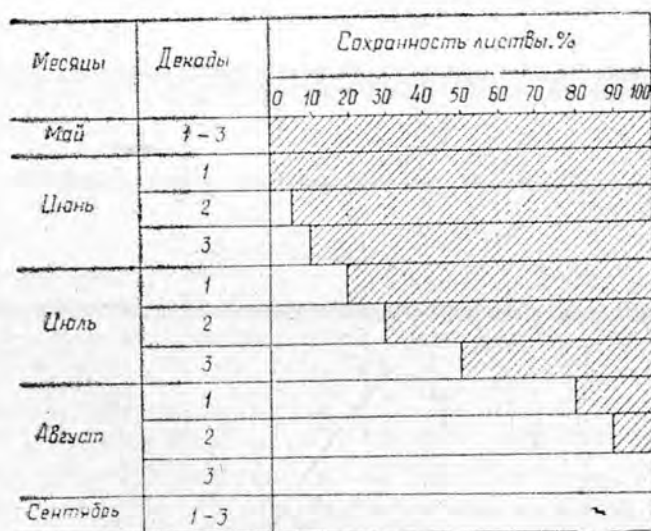 Месяцы Декады Сохранность листвы. %
0 10 20 30 40 50 60 70 80 90 100
Май 1-3
Июнь 1
2
3
Июль 1
2
3
Август 1
2
3
Сентябрь 1-3